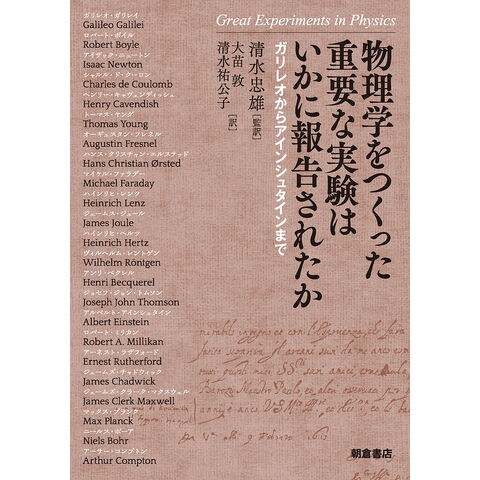 Great Experiments in Physics
物理学をつくった
重要な実験は
いかに報告されたか
ガリレオからアインシュタインまで
清水忠雄［監訳］
大苗 敦
清水祐公子［訳］
ガリレオ・ガリレイ
Galileo Galilei
ロバート・ボイル
Robert Boyle
アイザック・ニュートン
Isaac Newton
シャルル・ド・クーロン
Charles de Coulomb
ヘンリー・キャヴェンディッシュ
Henry Cavendish
トーマス・ヤング
Thomas Young
オーギュスタン・フレネル
Augustin Fresnel
ハンス・クリスチャン・エルステッド
Hans Christian Ørsted
マイケル・ファラデー
Michael Faraday
ハインリヒ・レンツ
Heinrich Lenz
ジェームス・ジュール
James Joule
ハインリヒ・ヘルツ
Heinrich Hertz
ヴィルヘルム・レントゲン
Wilhelm Röntgen
アンリ・ベクレル
Henri Becquerel
ジョセフ・ジョン・トムソン
Joseph John Thomson
アルベルト・アインシュタイン
Albert Einstein
ロバート・ミリカン
Robert A. Millikan
アーネスト・ラザフォード
Ernest Rutherford
ジェームズ・チャドウィック
James Chadwick
ジェームズ・クラーク・マクスウェル
James Clerk Maxwell
マックス・プランク
Max Planck
ニールス・ボーア
Niels Bohr
アーサー・コンプトン
Arthur Compton
朝倉書店